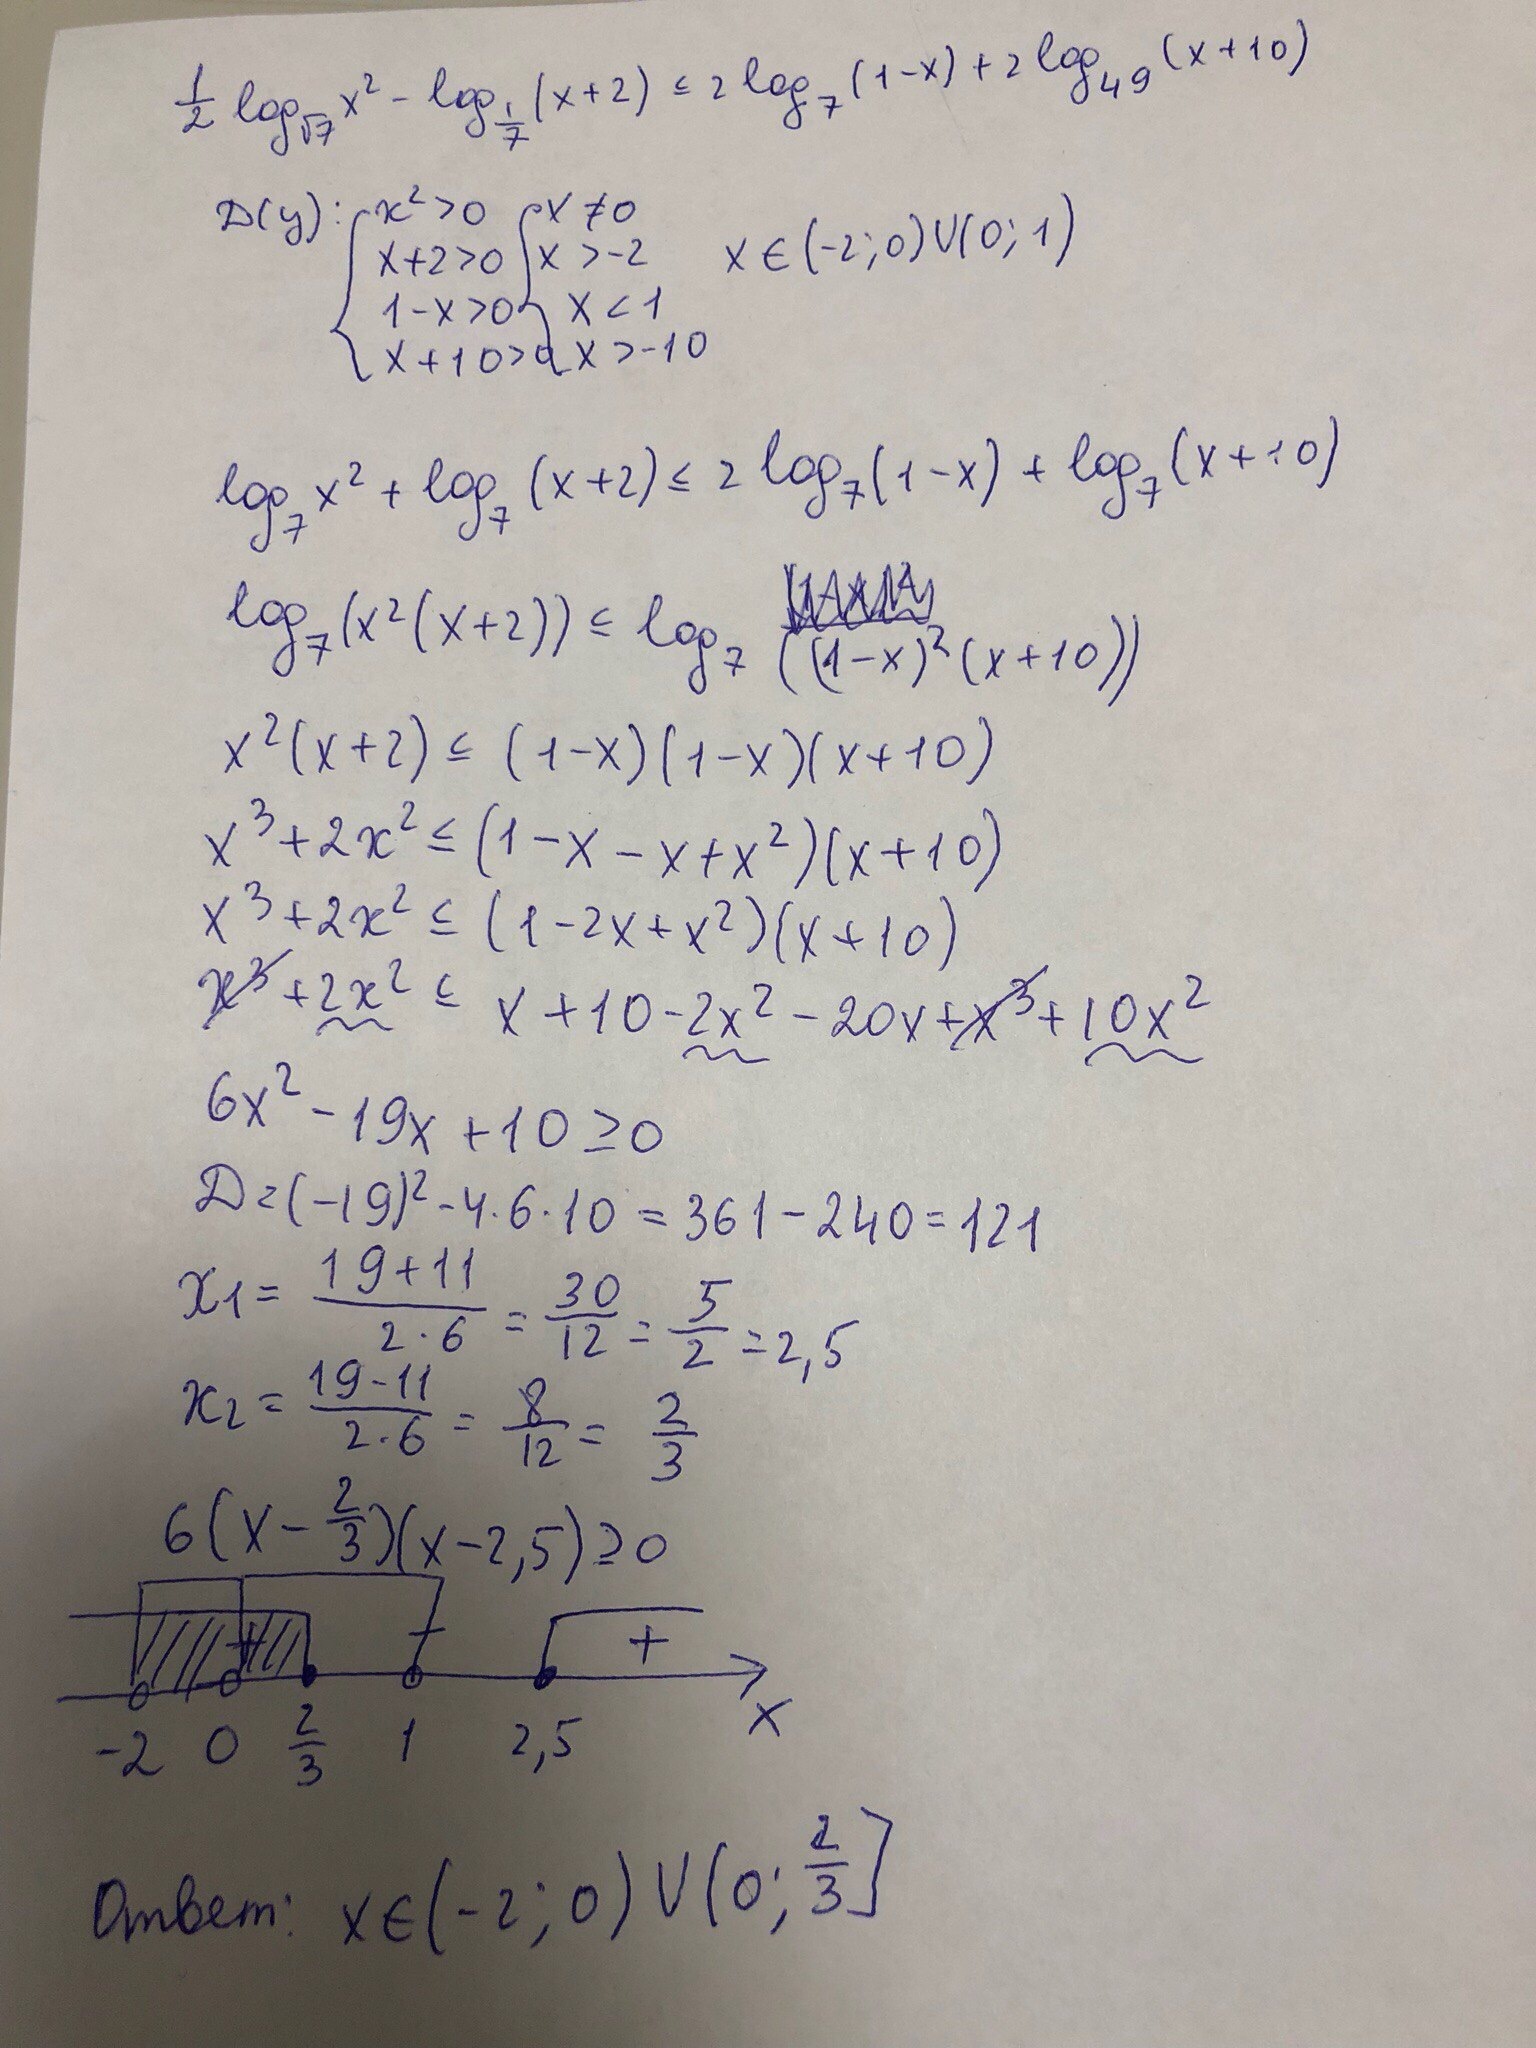 ½ log_√7 x² - log_1/7 (x+2) ≤ 2 log_7 (1-x) + 2 log_49 (x+10)
D(y): { x²>0 { x≠0
x+2>0 x>-2 x∈(-2;0)∪(0;1)
1-x>0 x<1
x+10>0 x>-10
log_7 x² + log_7 (x+2) ≤ 2 log_7 (1-x) + log_7 (x+10)
log_7 (x²(x+2)) ≤ log_7 ((1-x)²(x+10))
x²(x+2) ≤ (1-x)(1-x)(x+10)
x³+2x² ≤ (1-x-x+x²)(x+10)
x³+2x² ≤ (1-2x+x²)(x+10)
x³+2x² ≤ x+10-2x²-20x+x³+10x²
6x²-19x+10≥0
D=(-19)²-4·6·10=361-240=121
x1= (19+11)/(2·6) = 30/12 = 5/2 = 2,5
x2= (19-11)/(2·6) = 8/12 = 2/3
6(x-2/3)(x-2,5)≥0
+ - +
-2 0 2/3 1 2,5 x
Ответ: x∈(-2;0)∪(0;2/3]